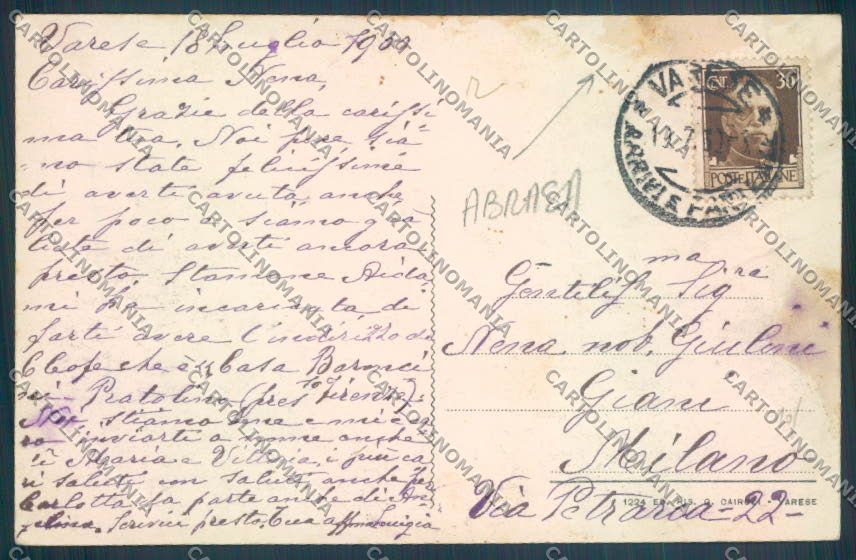 Varese 18 Luglio 19
Carissima Nena,
Grazie della carissi
ma tua. Noi pure sia=
mo state felicissime
di averti avuta anche
per poco e siamo
liete di averti ancora
presto. Stamane Aida
mi ha incaricata di
farti avere l'indirizzo di
Cleofe che è: Casa
Pratolino (pres^so Firenze)
Noi stiamo
inviarti
Maria e Vittoria, i più ca
ri saluti con saluti anche per
Carlotta da parte anche di An
gelina. Scrivici presto. Tua aff^ma Luigia
ABRASA
VARESE
ARRIVI E PAR
CT. 30
POSTE ITALIANE
Gentilis^ma Sig^ra
Nena nob. Giulini
Giani
Milano
Via Petrarca = 22 =
1224 ED. RIS. G. CAIROLI - VARESE
CARTOLINOMANIA